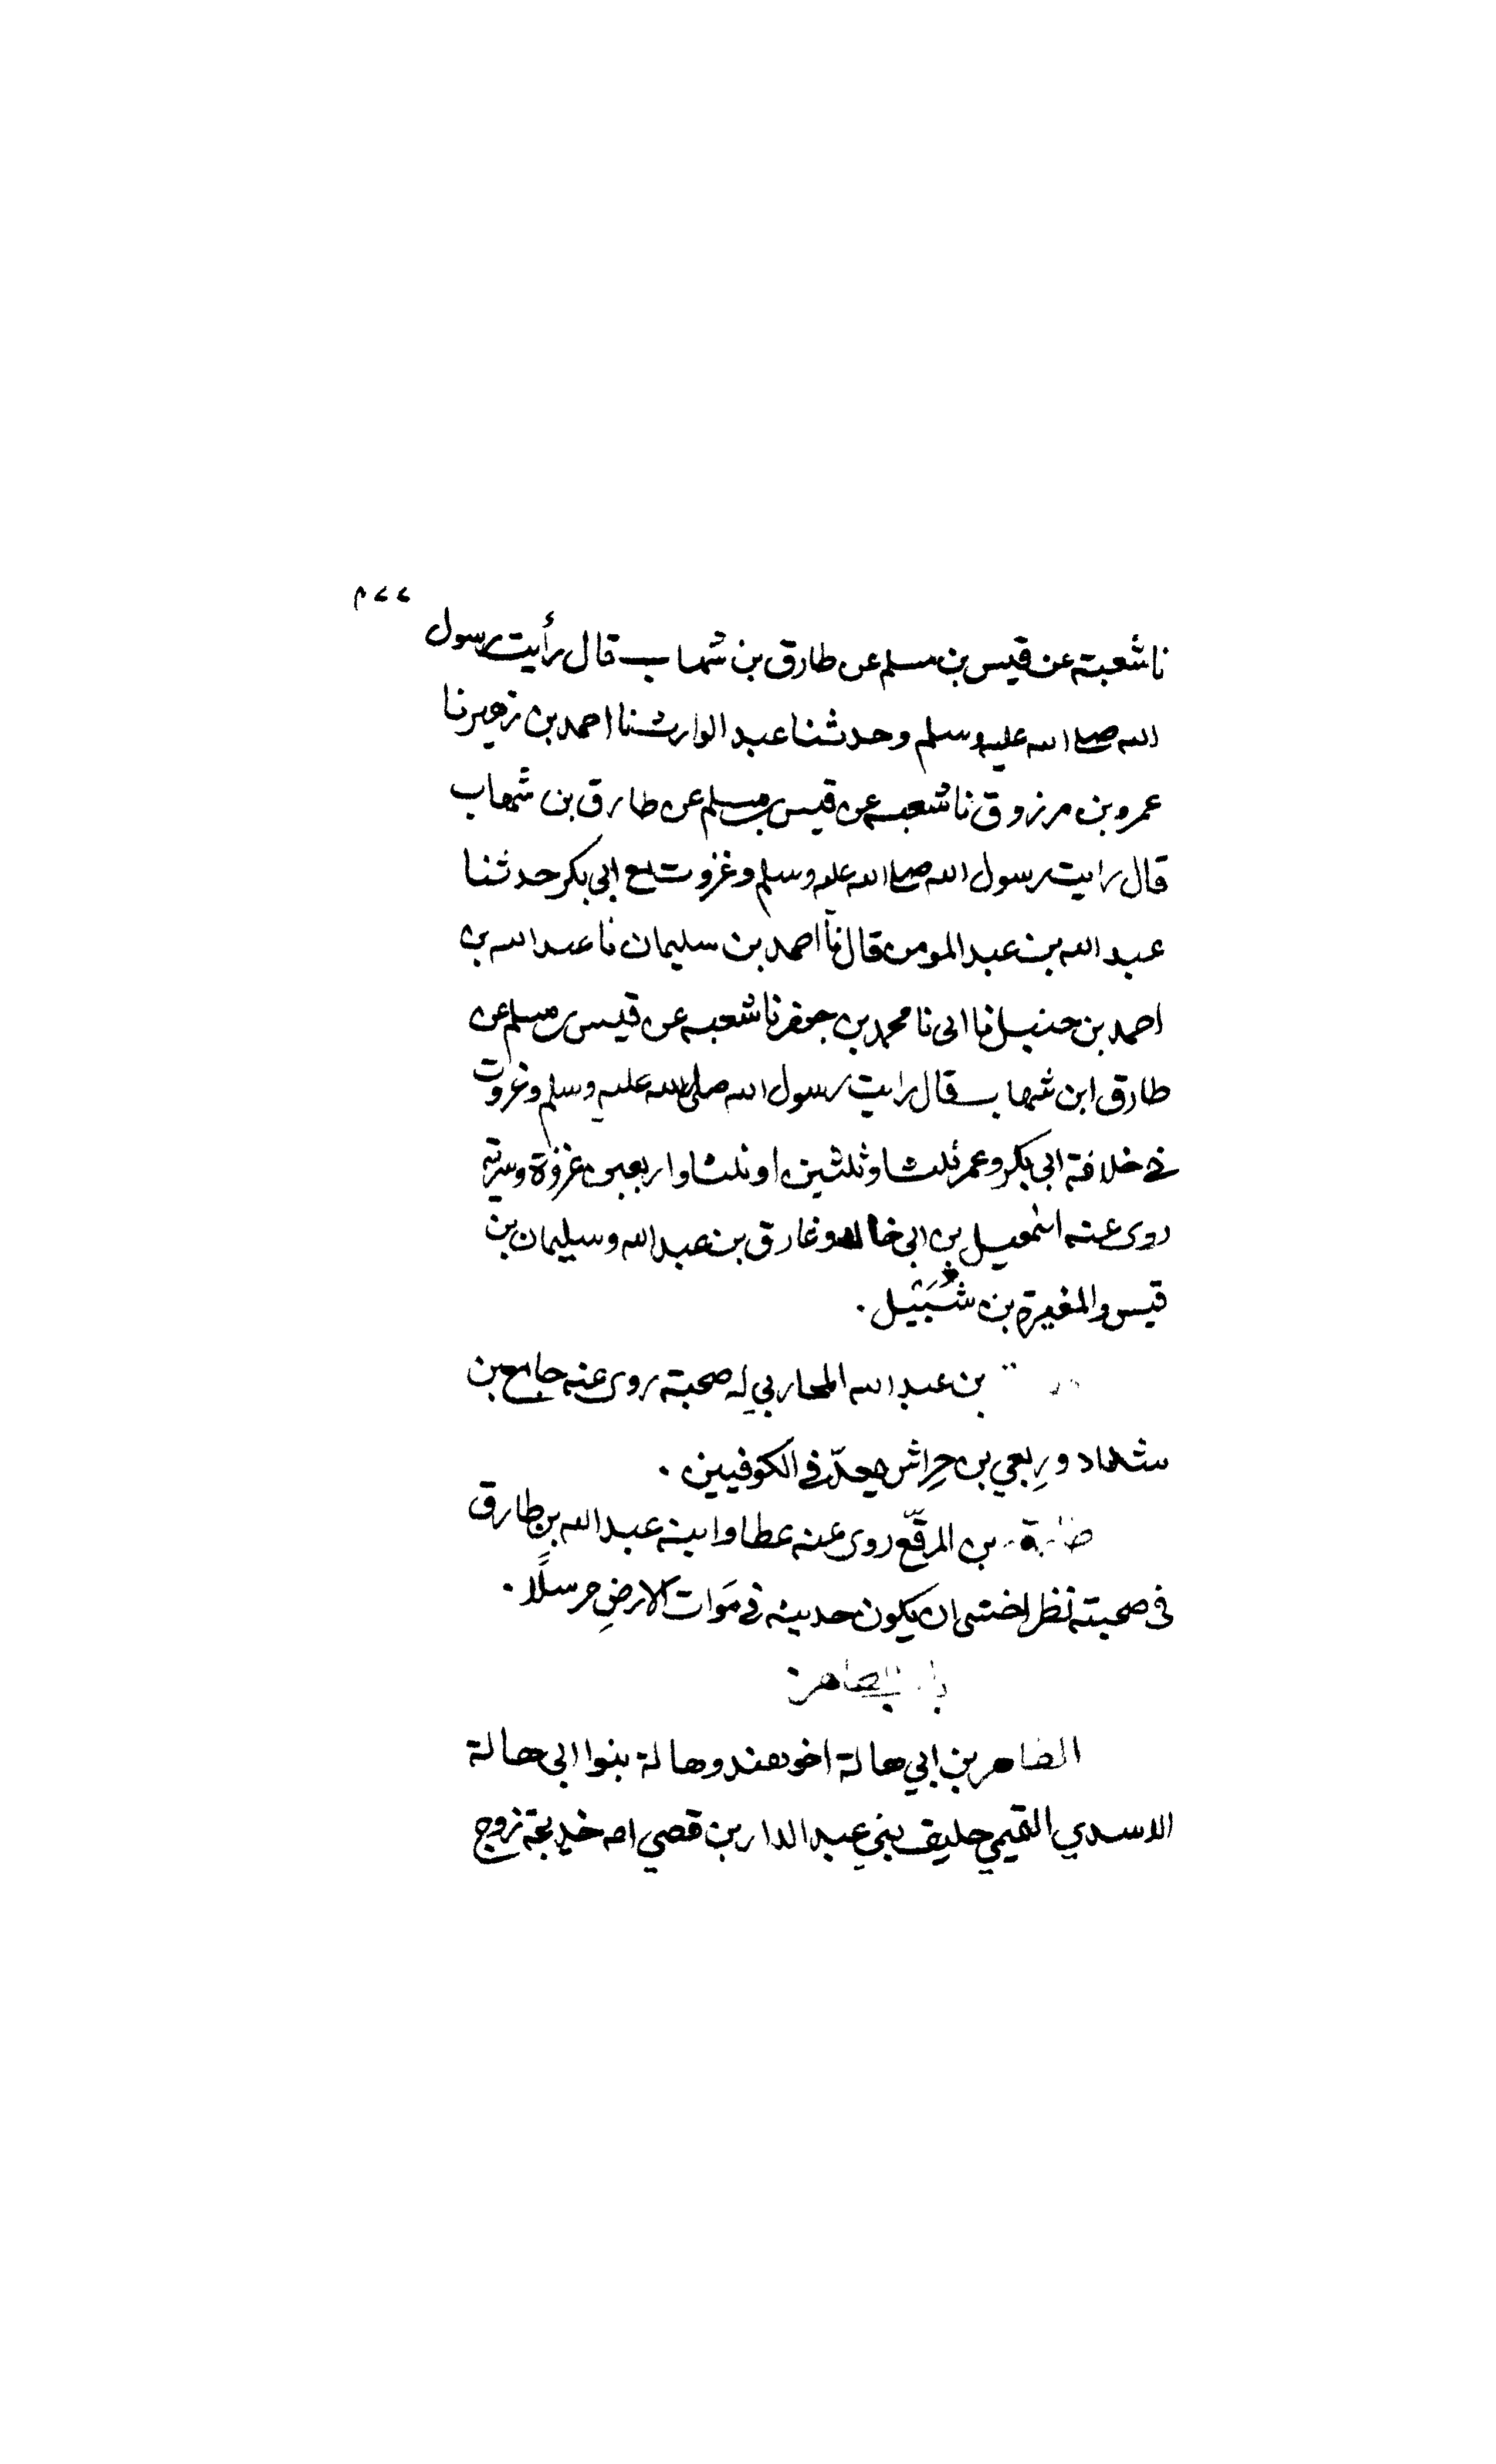 نا شعبة عن قيس بن مسلم عن طارق بن شهاب قال رأيت رسول
الله صلى الله عليه وسلم وحدثنا عبد الوارث نا احمد بن زهير نا
عمرو بن مرزوق نا شعبه عن قيس بن مسلم عن طارق بن شهاب
قال رايت رسول الله صلى الله عليه وسلم وغزوت مع ابي بكر حدثنا
عبد الله بن عبد المومن قال نا احمد بن سليمان نا عبد الله بن
احمد بن حنبل نا ابى نا محمد بن جعفر نا شعبه عن قيس بن مسلم عن
طارق ابن شهاب قال رايت رسول الله صلى الله عليه وسلم وغزوت
في خلافة ابى بكر وعمر ثلثا وثلثين او ثلثا واربعين غزوة وسرية
روى عنه اسمعيل بن ابي خالد و مخارق بن عبد الله وسليمان بن
قيس والمغيرة بن شُبَيْل .
بن عبد الله المحاربي له صحبة روى عنه جامع بن
شداد ورِبعي بن حِراش يعدّ في الكوفيين .
بن المرقّع روى عنه عطا وابنه عبد الله بن طارق
فى صحبته نظر اخشى ان يكون حديثه في مَوات الارضِ مرسلًا .
الطاهر بن ابي هالة اخو هند وهالة بنوا ابي هالة
الاسدي التميمي حليف بني عبد الدار بن قصي امه خديجة زوج